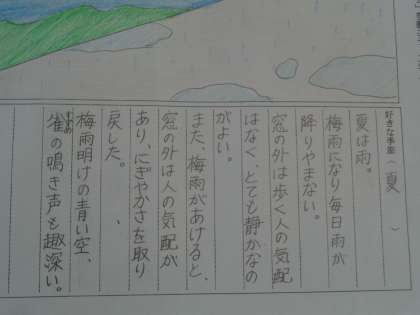 好きな季節（夏）
夏は雨。
梅雨になり毎日雨が
降りやまない。
窓の外は歩く人の気配
はなく、とても静かなの
がよい。
また、梅雨があけると、
窓の外は人の気配が
あり、にぎやかさを取り
戻した。
梅雨明けの青い空、
雀の鳴き声も趣深い。
すずめ